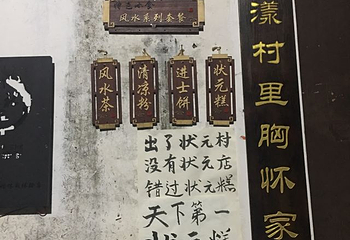 风水系列套餐
风水茶
清凉粉
进士饼
状元糕
出了状元村
没有状元店
错过状元糕
天下第一糕
漾村里胸怀家